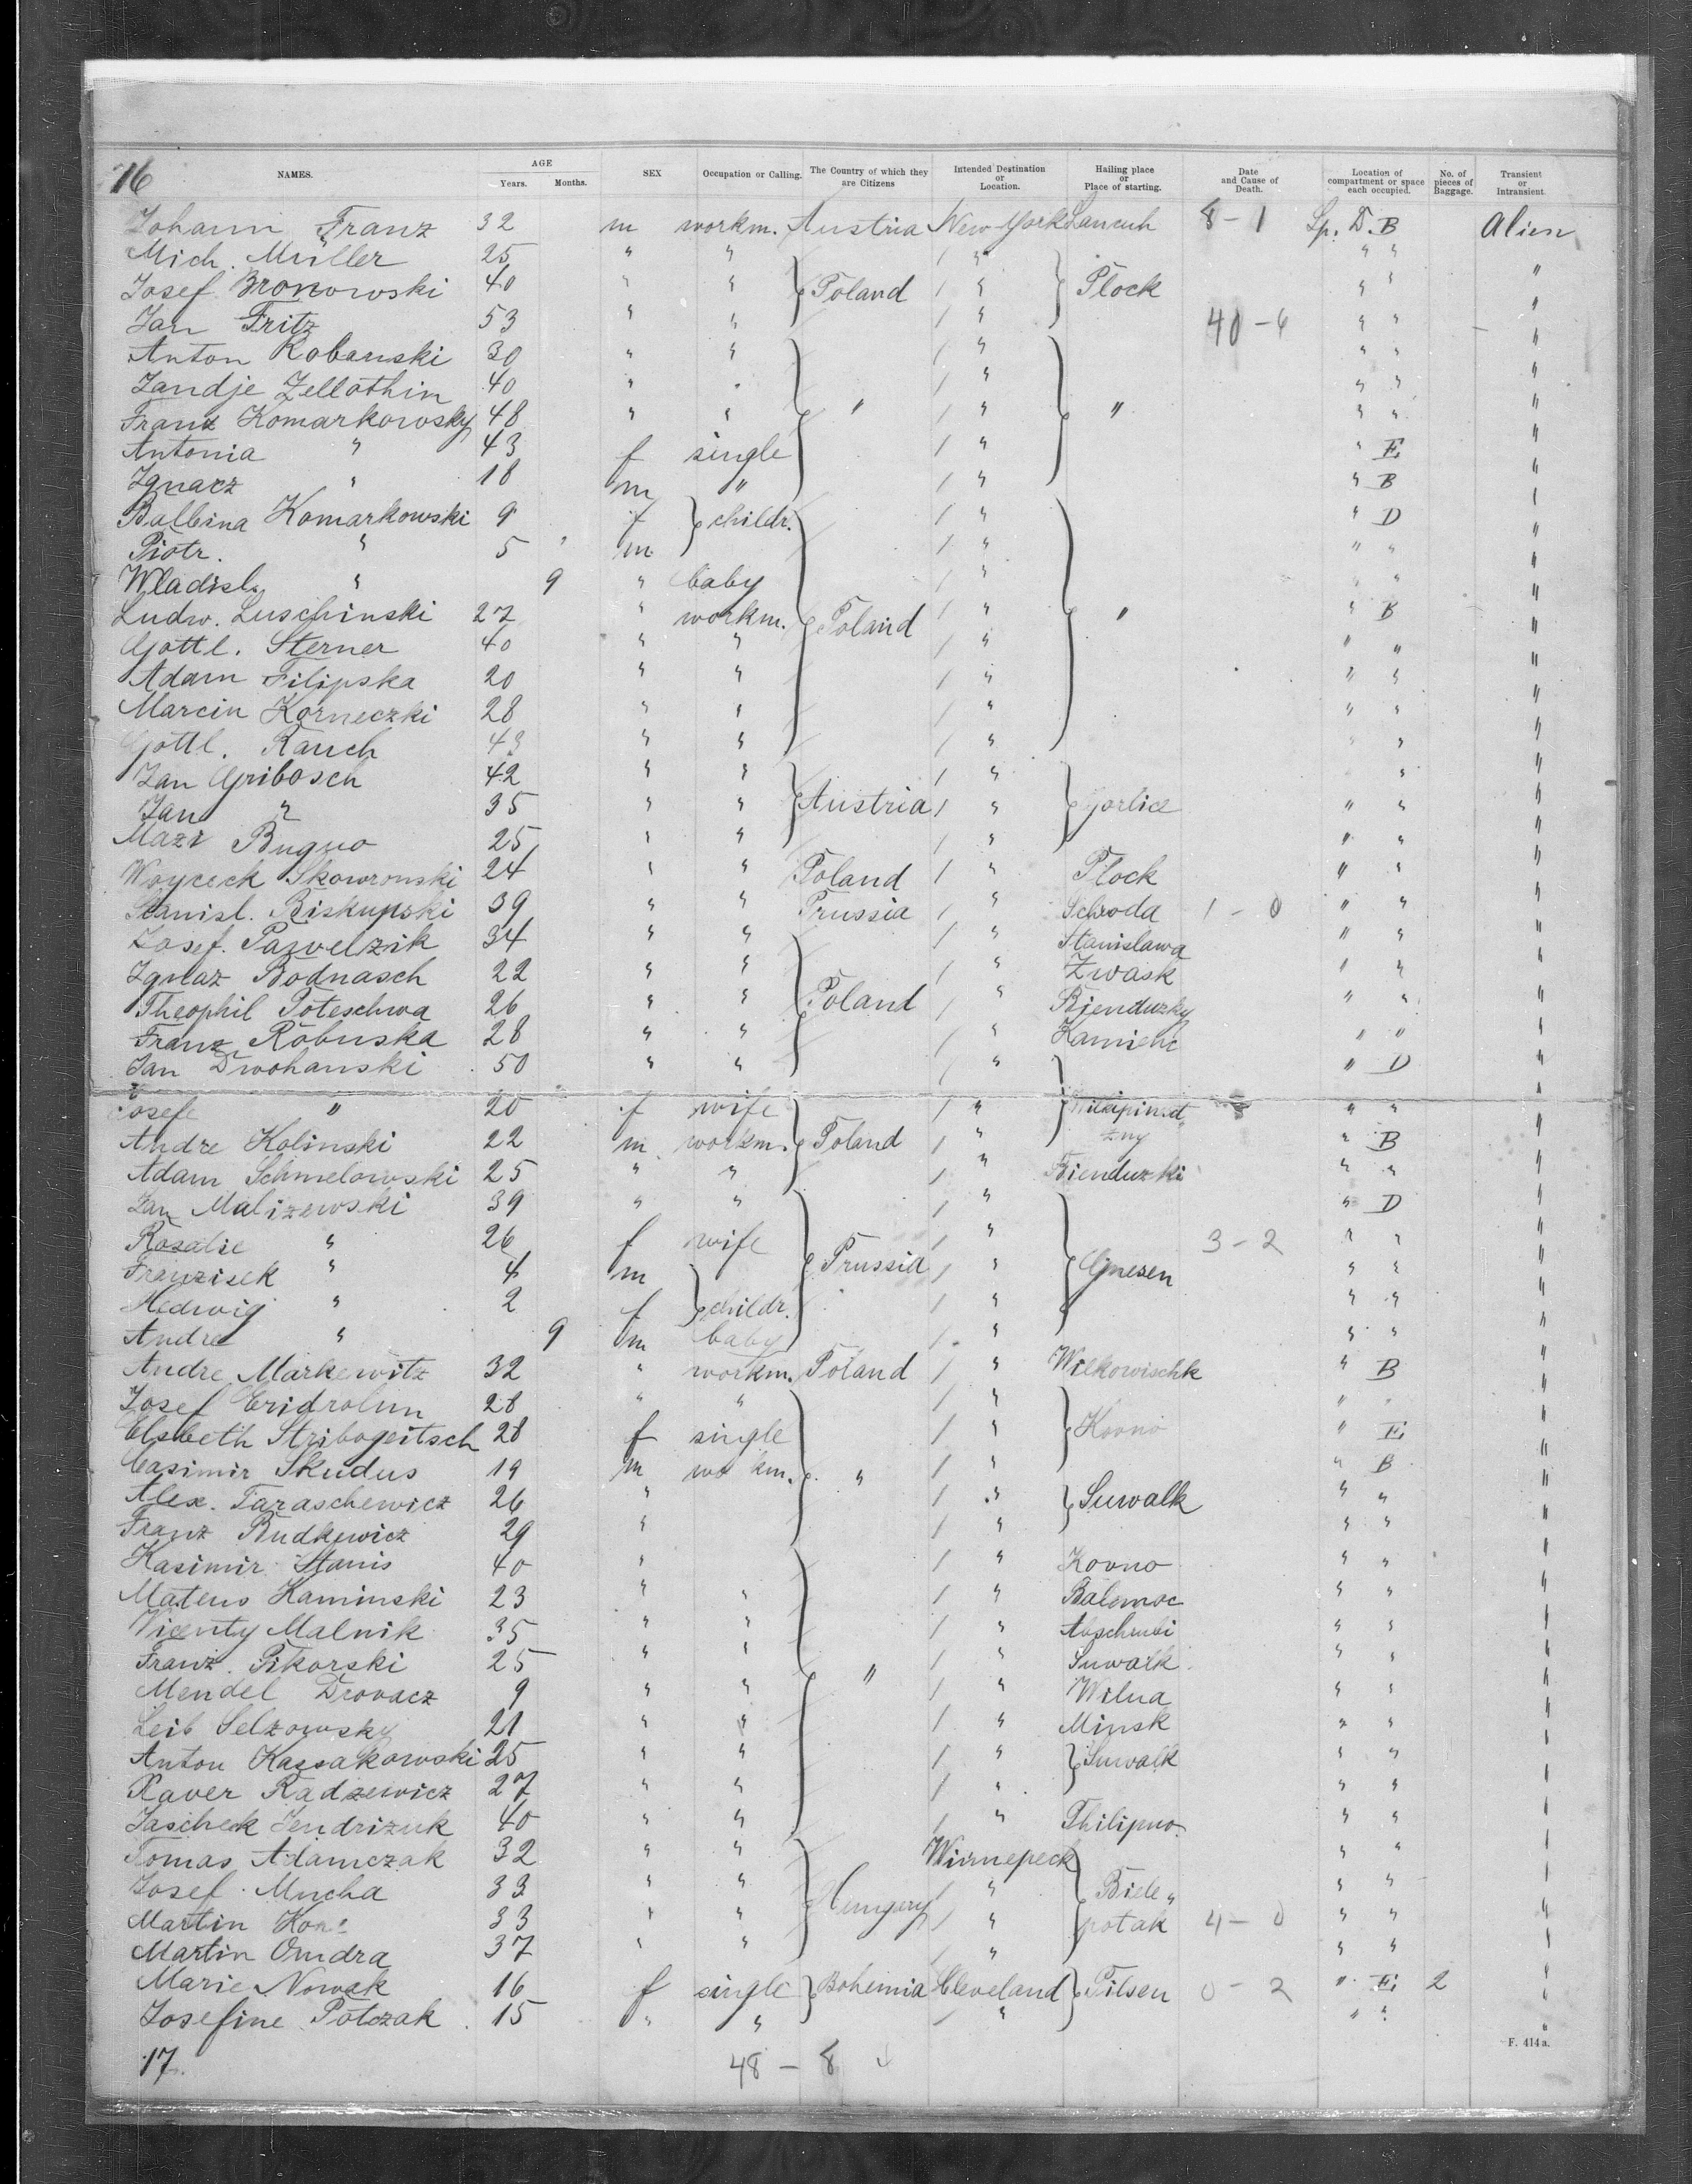 16
NAMES. AGE Years. Months. SEX Occupation or Calling. The Country of which they are Citizens Intended Destination or Location. Hailing place or Place of starting. Date and Cause of Death. Location of compartment or space each occupied. No. of pieces of Baggage. Transient or Intransient.
Johann Franz 32 m workm. Austria New York Lancuh 8 - 1 Sp. D. B Alien
Mich. Müller 25 " " / " " " "
Josef Bronowski 40 " " Poland / " Plock " " "
Jan Fritz 53 " " / " 40 - 6 " " "
Anton Kobanski 30 " " / " " " "
Jandje Zellothin 40 " " / " " " "
Franz Komarkowsky 48 " " " / " " " " "
Antonia " 43 f single / " " E "
Ignarz " 18 m " / " " B "
Balbina Komarkowski 9 f childr. / " " D "
Piotr. " 5 m / " " " "
Wladisl. " 9 " baby / " " " "
Ludw. Luschinski 27 " workm. Poland / " " " B "
Gottl. Sterner 40 " " / " " " "
Adam Filipska 20 " " / " " " "
Marcin Korneczki 28 " " / " " " "
Gottl. Rauch 43 " " / " " " "
Jan Gribosch 42 " " / " " "
Jan " 35 " " Austria / " Gorlice " " "
Mazi Bugno 25 " " / " " " "
Woyceck Skowronski 24 " " Poland / " Plock " " "
Stanisl. Biskupski 39 " " Prussia / " Schroda 1 - 0 " " "
Josef. Pawelzik 34 " " / " Stanislawa " " "
Ignaz Bodnasch 22 " " / " Zwask " " "
Theophil Poteschwa 26 " " Poland / " Bjenduzky " " "
Franz Robuska 28 " " / " Kamienc " " "
Jan Dwohanski 50 " " / " " D "
Josefe " 20 f wife / " " " "
Andre Kolinski 22 m workm. Poland / " zny " B "
Adam Schmelowski 25 " " / " Bienduzki " " "
Jan Malizewski 39 " " / " " D "
Rosalie " 26 f wife / " 3 - 2 " " "
Franzisek " 4 m Prussia / " Gnesen " " "
Hedwig " 2 f childr. / " " " "
Andre " 9 m baby / " " " "
Andre Markewitz 32 " workm. Poland / " Wilkowischk " B "
Josef Eridrolun 28 " " / " " " "
Elsbeth Stribogeitsch 28 f single / " Kovno " E "
Casimir Skudus 19 m workm. " / " " B "
Alex. Taraschewicz 26 " / " Suwalk " " "
Franz Budkewicz 29 " / " " " "
Kasimir Stanis 40 " / " Kovno " " "
Mateus Kaminski 23 " " / " Balemoc " " "
Vicenty Malnik 35 " " / " Abschrubi " " "
Franz. Pikorski 25 " " / " Suwalk " " "
Mendel Drovacz 9 " " " / " Wilna " " "
Leib Selzowsky 21 " " / " Minsk " " "
Anton Kassakowski 25 " " / " Suwalk " " "
Xaver Radzewicz 27 " " / " " " "
Jascheck Jendrizuk 40 " " / " Philipno. " " "
Tomas Adamczak 32 " " Winnepeck " " "
Josef Mucha 33 " " Hungary / " Biele " " "
Martin 33 " " / " potak 4 - 0 " " "
Martin Ondra 37 " " " " " "
Marie Nowak 16 f single Bohemia Cleveland Pilsen 0 - 2 " E 2 "
Josefine Potczak 15 " " / " " " "
F. 414 a.
17. 48 - 8